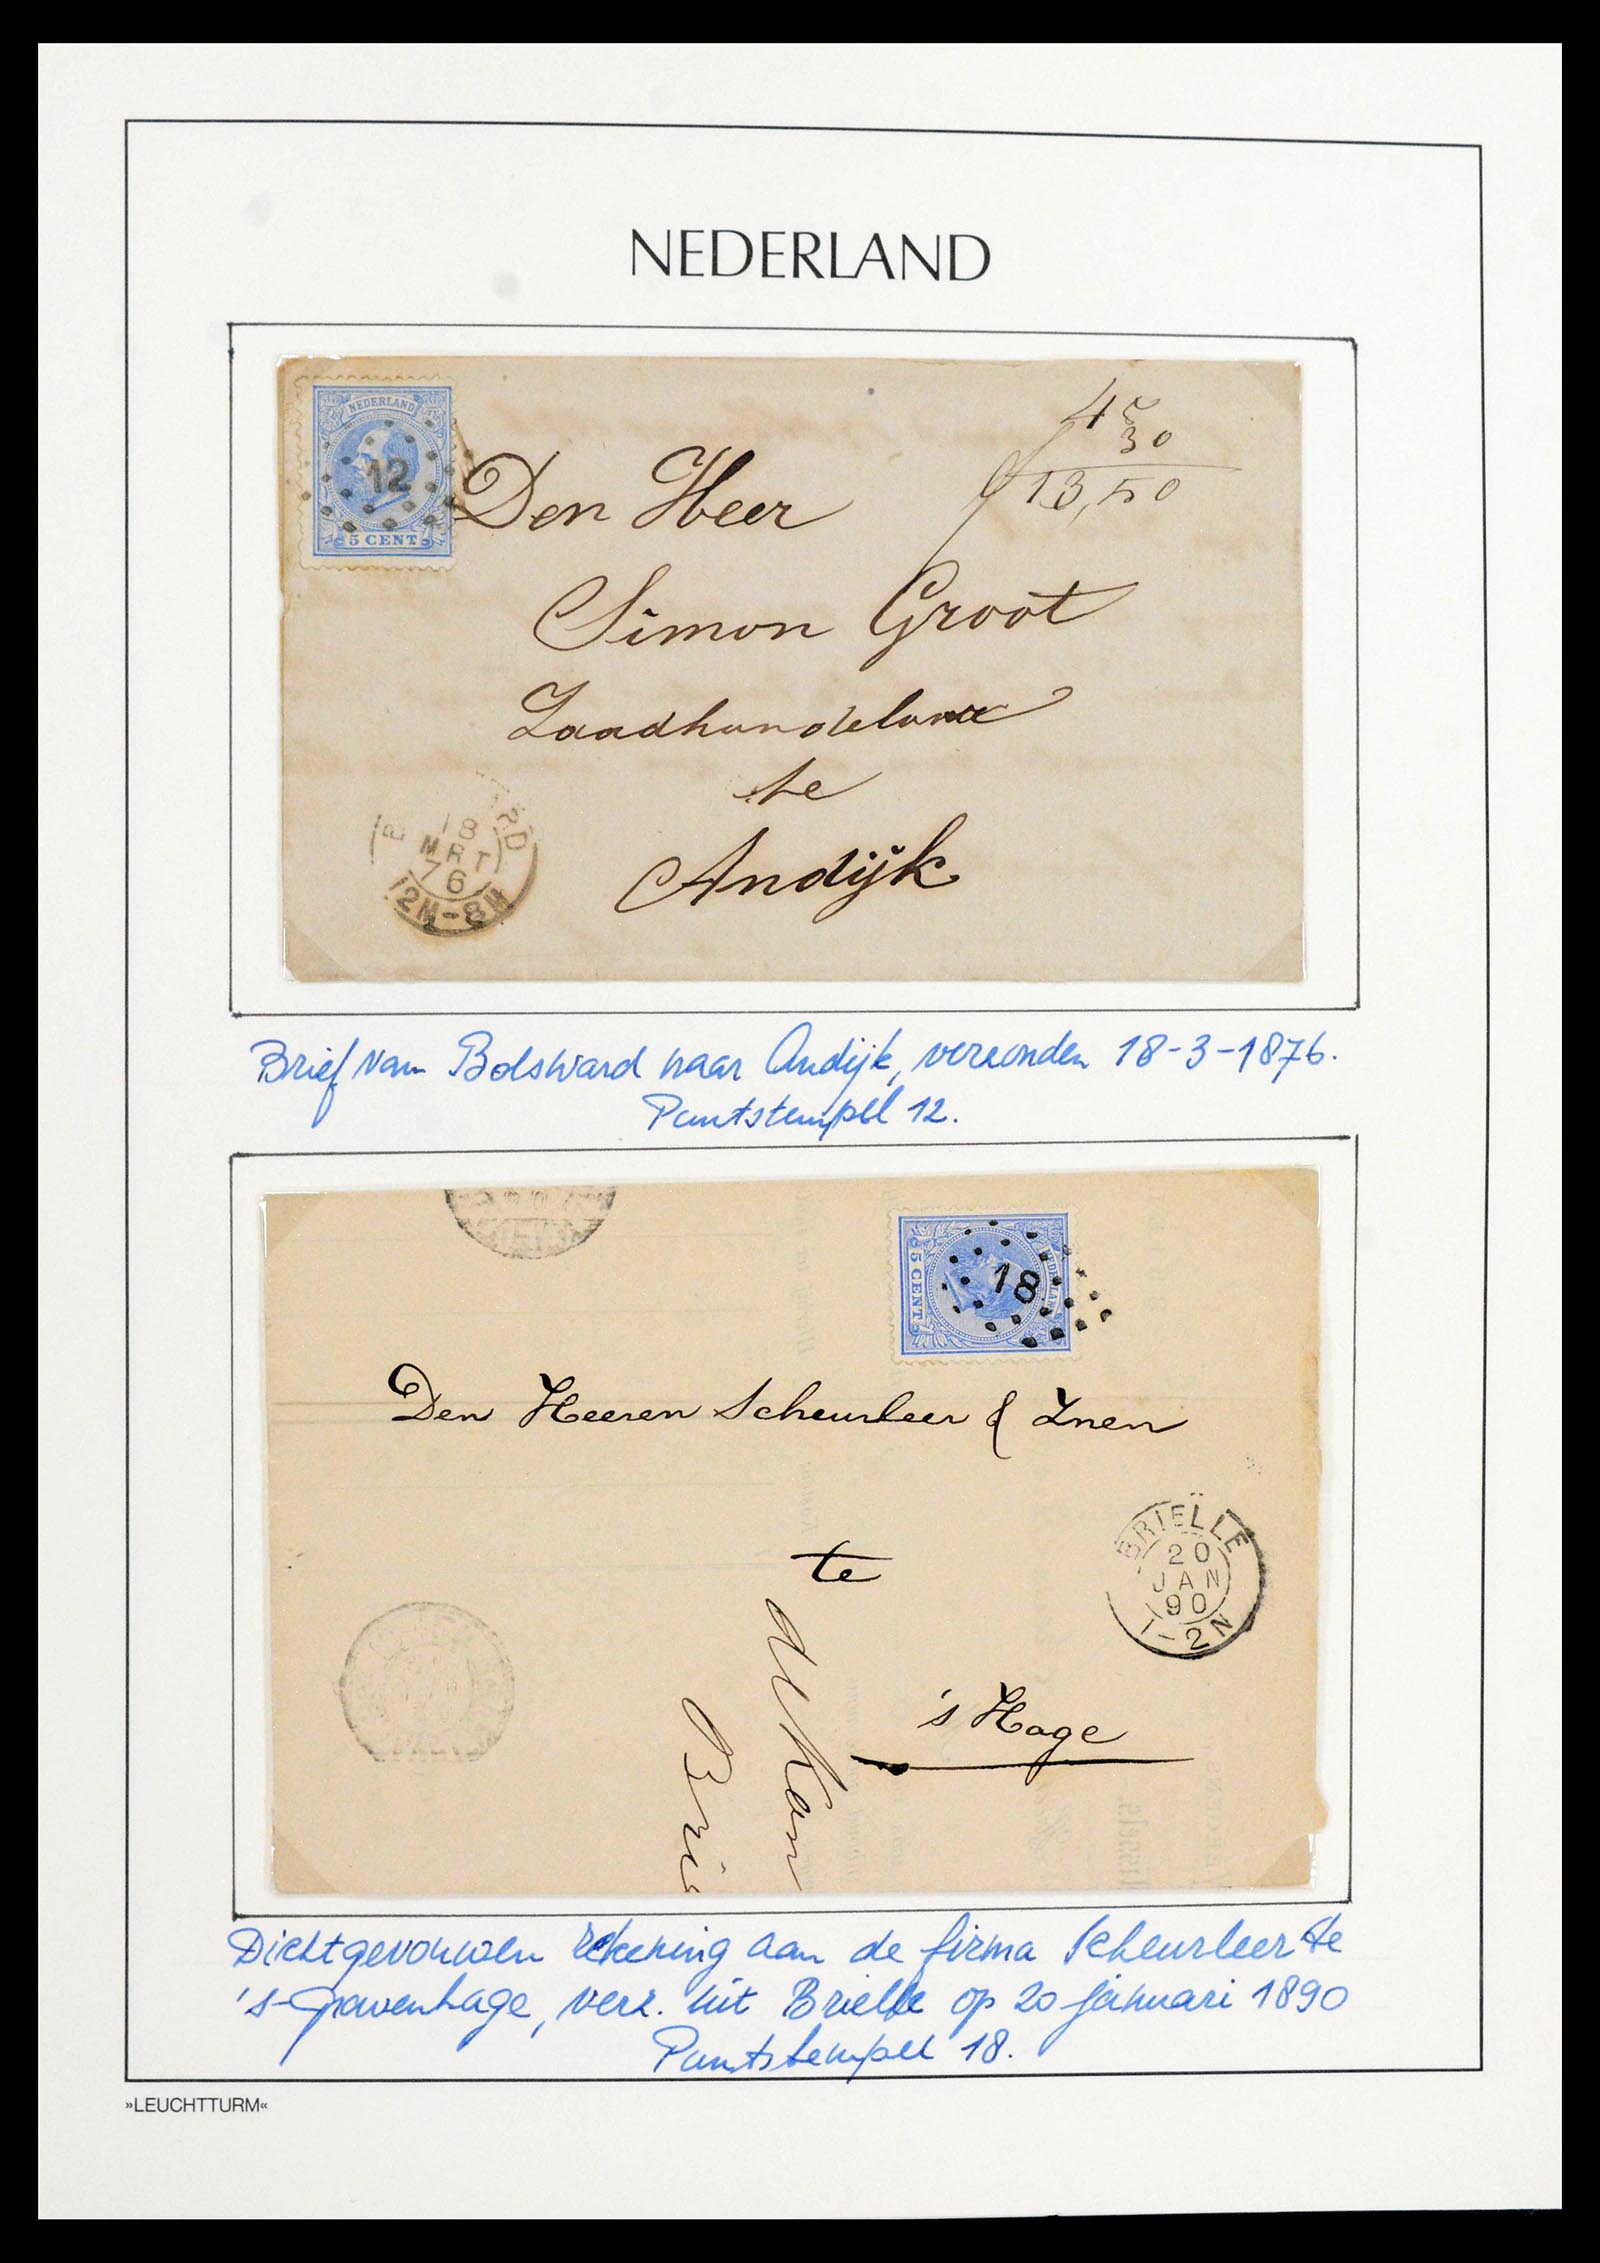 NEDERLAND
NEDERLAND
12
5 CENT
4 5
30
13,50
Den Heer
Simon Groot
Zaadhandelaar
te
Andijk
18
MRT
76
12M-8M
Brief van Bolsward naar Andijk, verzonden 18-3-1876.
Puntstempel 12.
18
5 CENT
Den Heeren Scheurleer & Znen
te
's Hage
BRIËLLE
20
JAN
90
1-2N
Dichtgevouwen rekening aan de firma Scheurleer te
's-Gravenhage, verz. uit Brielle op 20 januari 1890
Puntstempel 18.
»LEUCHTTURM«